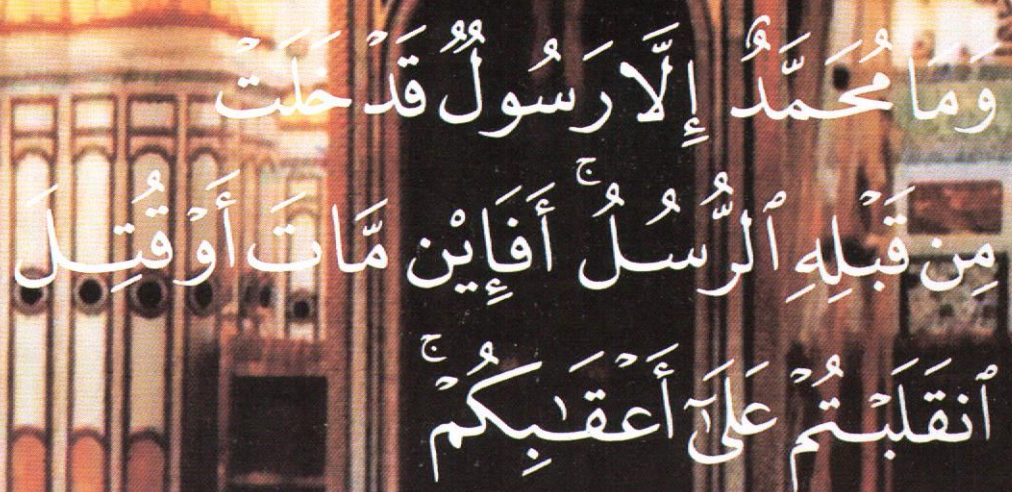 وَمَا مُحَمَّدٌ إِلَّا رَسُولٌ قَدْ خَلَتْ
مِن قَبْلِهِ ٱلرُّسُلُ ۚ أَفَإِيْن مَّاتَ أَوْ قُتِلَ
ٱنقَلَبْتُمْ عَلَىٰٓ أَعْقَـٰبِكُمْ ۚ